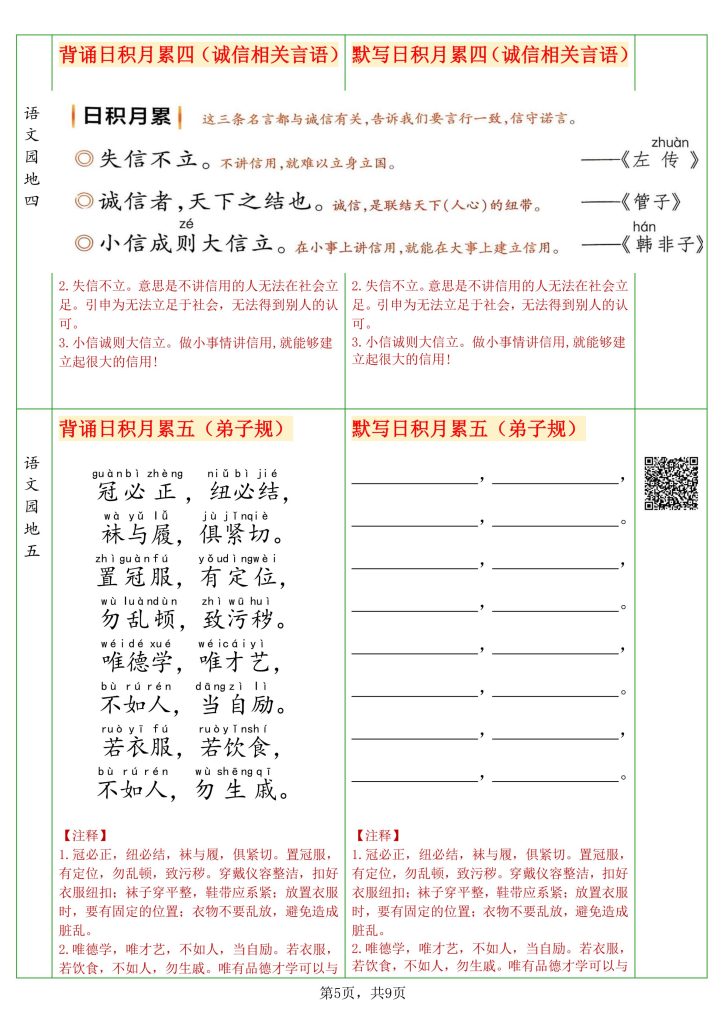 背诵日积月累四（诚信相关言语）
默写日积月累四（诚信相关言语）
语文园地四
日积月累
这三条名言都与诚信有关，告诉我们要言行一致，信守诺言。
zhuàn
◎失信不立。不讲信用，就难以立身立国。 ——《左传》
◎诚信者，天下之结也。诚信，是联结天下（人心）的纽带。 ——《管子》
zé hán
◎小信成则大信立。在小事上讲信用，就能在大事上建立信用。 ——《韩非子》
2.失信不立。意思是不讲信用的人无法在社会立
足。引申为无法立足于社会，无法得到别人的认
可。
3.小信诚则大信立。做小事情讲信用,就能够建
立起很大的信用!
2.失信不立。意思是不讲信用的人无法在社会立
足。引申为无法立足于社会，无法得到别人的认
可。
3.小信诚则大信立。做小事情讲信用,就能够建
立起很大的信用!
语文园地五
背诵日积月累五（弟子规）
guàn bì zhèng niǔ bì jié
冠必正，纽必结，
wà yǔ lǚ jù jǐn qiè
袜与履，俱紧切。
zhì guàn fú yǒu dìng wèi
置冠服，有定位，
wù luàn dùn zhì wū huì
勿乱顿，致污秽。
wéi dé xué wéi cái yì
唯德学，唯才艺，
bù rú rén dāng zì lì
不如人，当自励。
ruò yī fú ruò yǐn shí
若衣服，若饮食，
bù rú rén wù shēng qī
不如人，勿生戚。
【注释】
1.冠必正，纽必结，袜与履，俱紧切。置冠服，
有定位，勿乱顿，致污秽。穿戴仪容整洁，扣好
衣服纽扣；袜子穿平整，鞋带应系紧；放置衣服
时，要有固定的位置；衣物不要乱放，避免造成
脏乱。
2.唯德学，唯才艺，不如人，当自励。若衣服，
若饮食，不如人，勿生戚。唯有品德才学可以与
默写日积月累五（弟子规）
，，
，。
，，
，。
，，
，。
，，
，。
【注释】
1.冠必正，纽必结，袜与履，俱紧切。置冠服，
有定位，勿乱顿，致污秽。穿戴仪容整洁，扣好
衣服纽扣；袜子穿平整，鞋带应系紧；放置衣服
时，要有固定的位置；衣物不要乱放，避免造成
脏乱。
2.唯德学，唯才艺，不如人，当自励。若衣服，
若饮食，不如人，勿生戚。唯有品德才学可以与
第5页，共9页